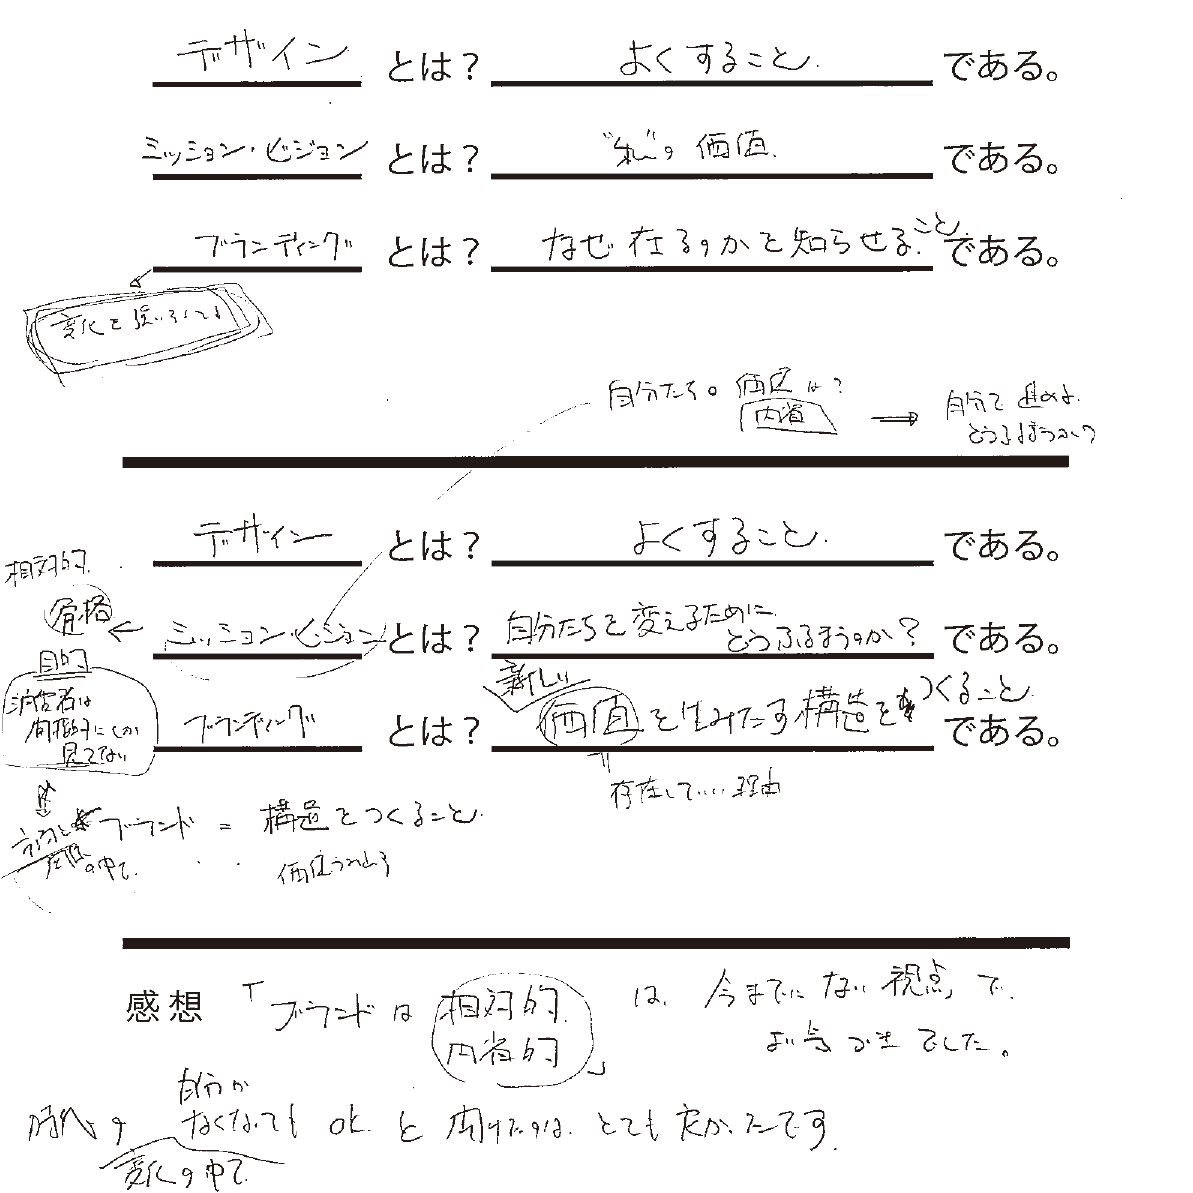 デザイン とは? よくすること. である。
ミッション・ビジョン とは? "私"の 価値. である。
ブランディング とは? なぜ在るのかを知らせること. である。
変化を強いなくても
自分たちの価値は?
内省
→ 自分で進めば
どうふるまうか?
デザイン とは? よくすること. である。
相対的.
価格 ←
ミッション・ビジョン とは? 自分たちを変えるために どうふるまうのか? である。
目的
消費者は
価格的にしか
見てない
新しい
ブランディング とは? 価値を生みだす構造をつくること. である。
存在していい理由
ブランド = 構造をつくること.
の中で.
価値うめる
感想 「ブランドは 相対的. 内省的」 は. 今までにない視点で.
お気づきでした。
時代の 自分が なくなっても ok. と 聞けたのは とても 良かったです.
変化の中で.